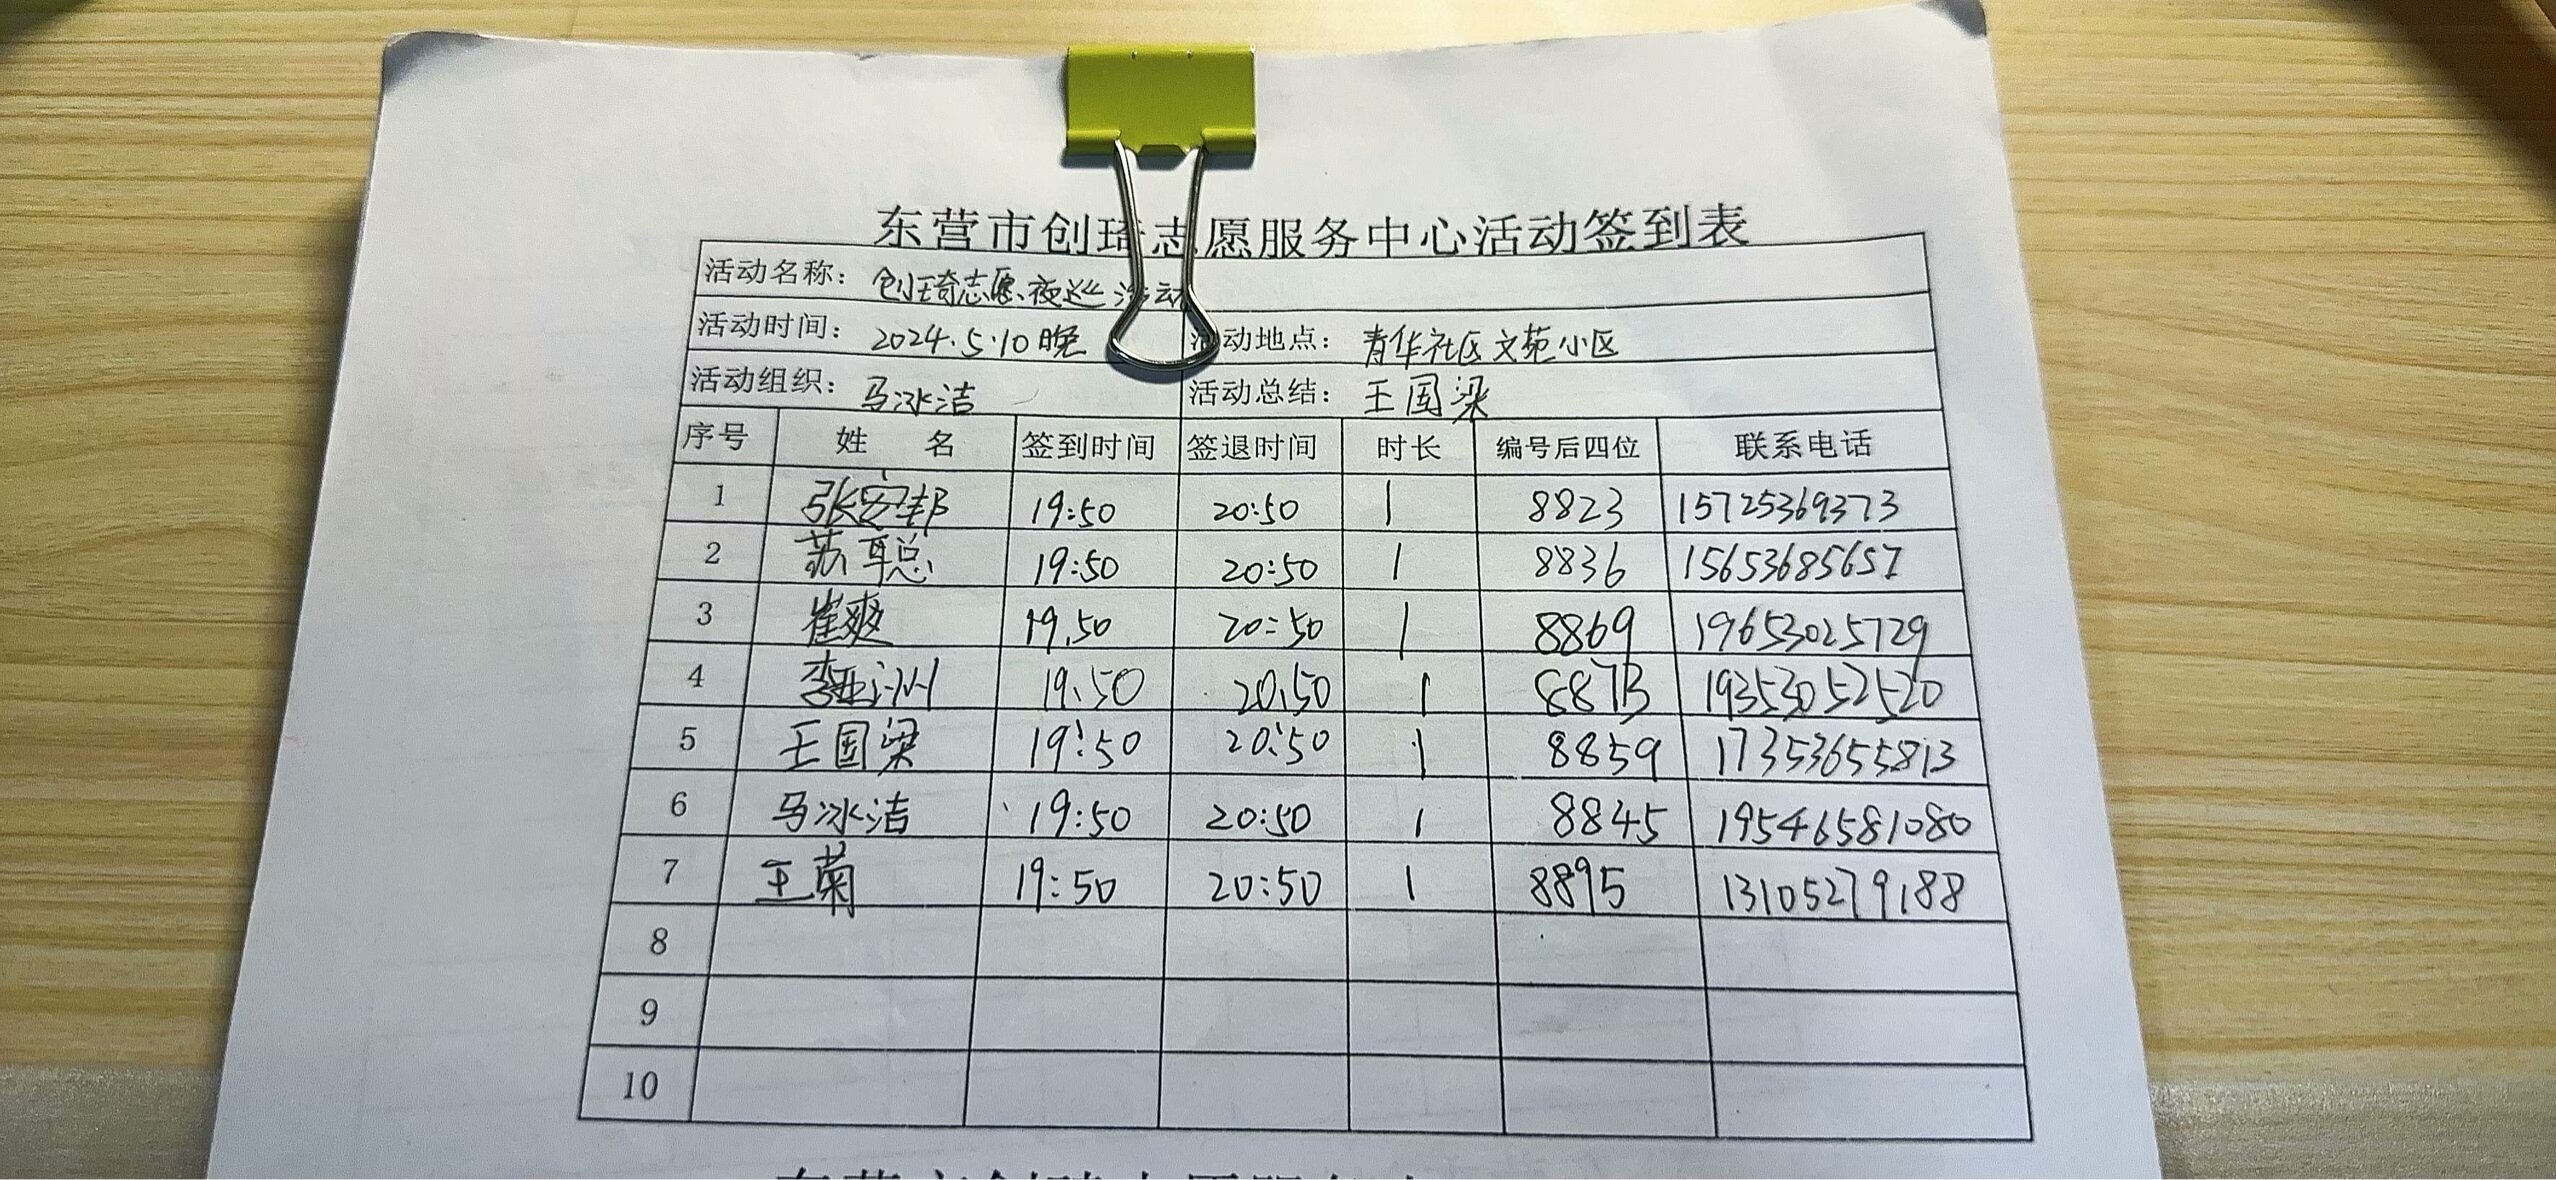 东营市创琦志愿服务中心活动签到表
活动名称: 创琦志愿夜巡活动
活动时间: 2024.5.10晚 活动地点: 青华社区文苑小区
活动组织: 马冰洁 活动总结: 王国梁
序号 姓 名 签到时间 签退时间 时长 编号后四位 联系电话
1 张安邦 19:50 20:50 1 8823 15725369373
2 苏聪 19:50 20:50 1 8836 15653685657
3 崔爽 19.50 20:50 1 8869 19653025729
4 李亚洲 19.50 20.50 1 8873 19353052520
5 王国梁 19:50 20:50 1 8859 17353655813
6 马冰洁 19:50 20:50 1 8845 19546581080
7 王菊 19:50 20:50 1 8895 13105279188
8
9
10